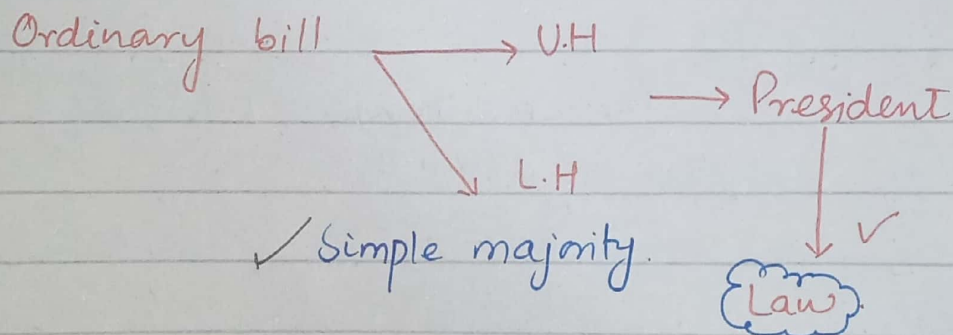 Ordinary bill → U.H
→ President
L.H
✓ Simple majority.
✓
Law